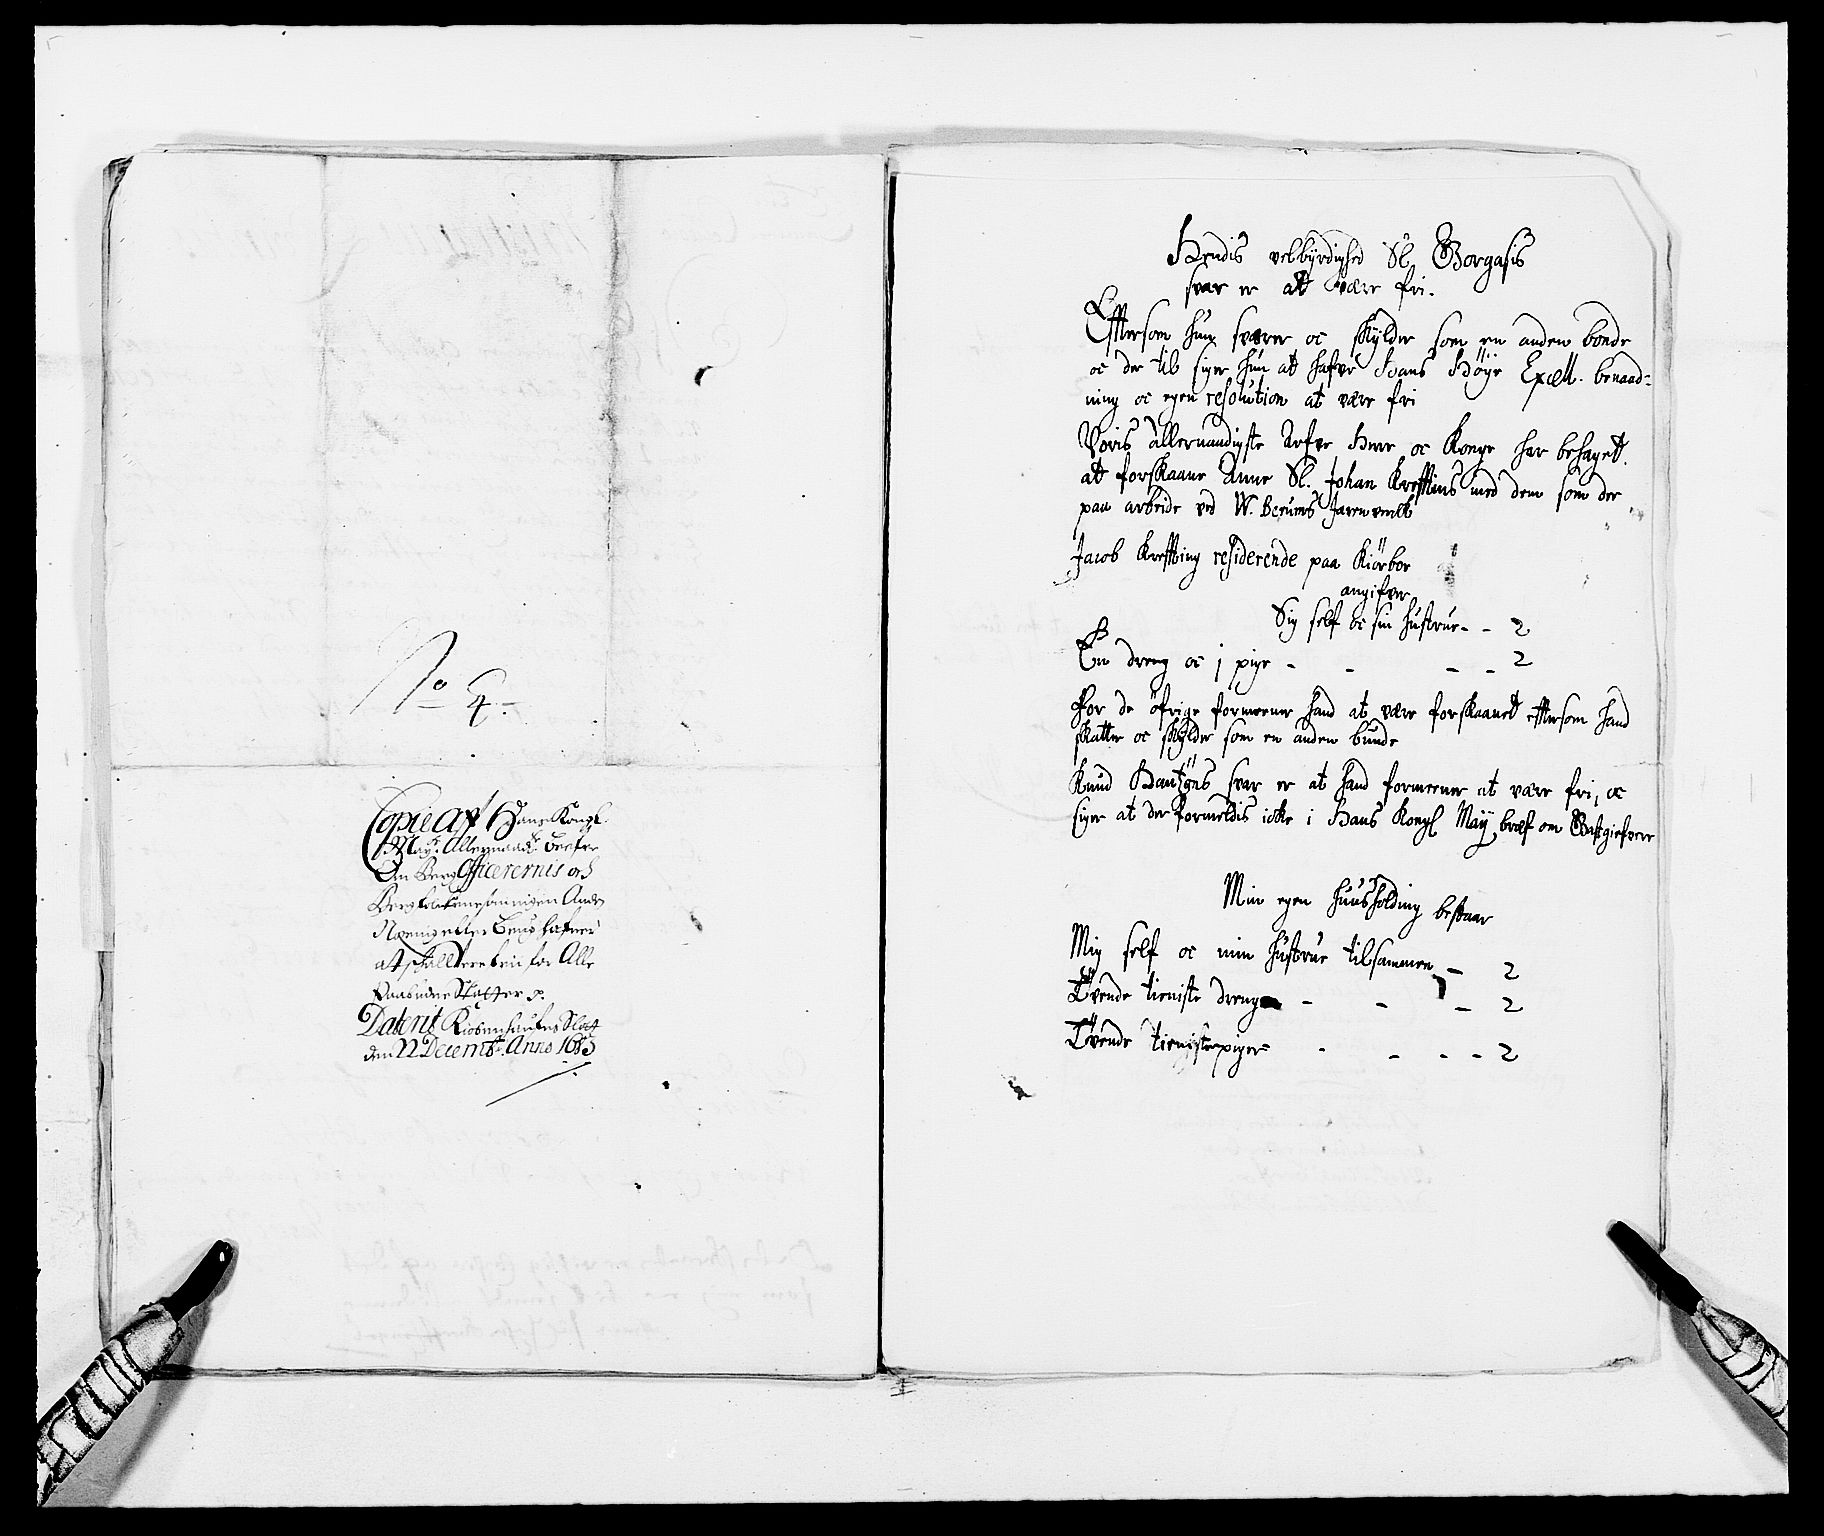 No 4.
Copie Af Hans Kongl.
May. Allernaad. 
Om Berg Officerernis och
at skall vere frie for Alle
Paabudne Skatter p.
Daterit Kiøbenhaufns Slott
den 22 Decemb. Anno 1683
Hendis velbÿrdighed Sl. Borgasis
svar er att være fri.
Effttersom hun svarer oc skÿlder som en anden bonde
oc der til siger hun at hafve Hans Höÿe Excell. benaad-
ning oc egen resolution at være fri
Voris allernaadigste Arfve Herre oc Konge har behaget.
att forskaane Anne Sl. Johan Krefftins med dem som der
paa arbeide ved W. Berums Jarenverck
Jacob Kreffting residerende paa Kiörbor
angifver
Sig self oc sin hustrue - - 2
En dreng oc j pige - - - - 2
For de öfrige formeener hand at være forskaanet efftersom hand
skatter oc skÿlder som en anden bunde
Knud svar er at hand formeener at være fri, oc
siger at der formeldis icke i Hans Kongl Maÿ bref om Gastgiefvere
Min egen huusholding bestaar
Mig self oc min hustrue tilsammen - 2
Tvende tieniste drenge - - - 2
Tvende tienistepiger - - - - 2